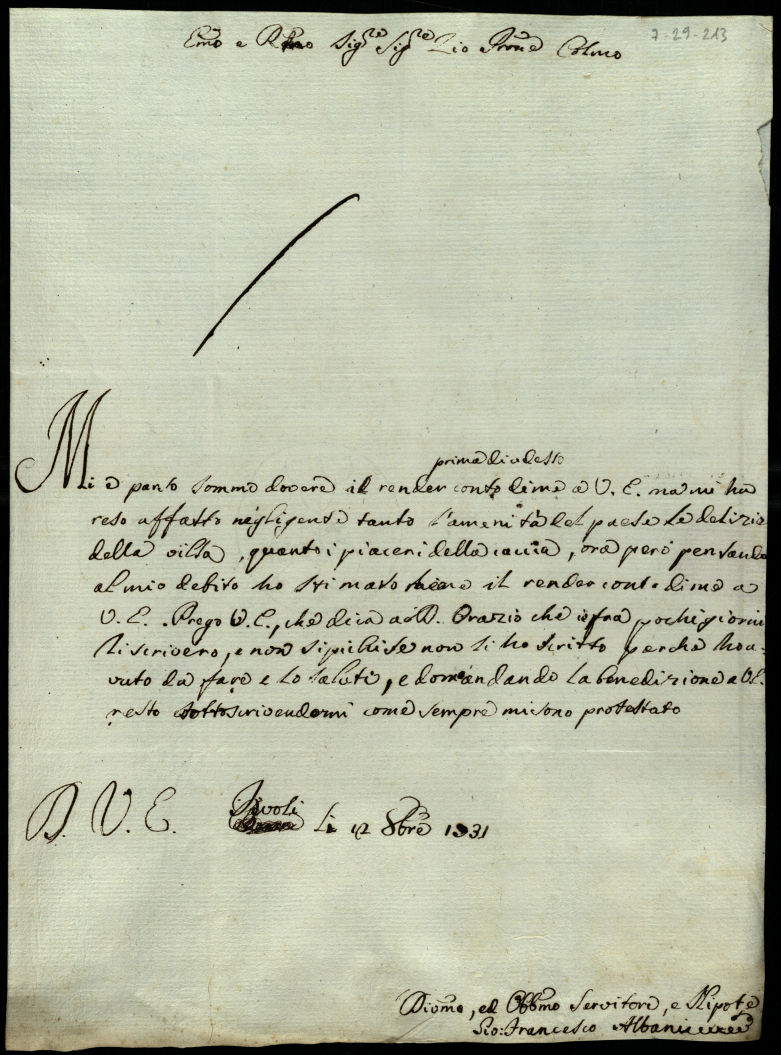 Emo e Rmo Sigre Sigre Zio Prone Colmo
7-29-213
prima di adesso
Mi è parso sommo dovere il render conto di me a V. E. ma mi ha
reso affatto negligente tanto l'amenità del paese le delizie
della villa, quanto i piaceri della caccia, ora però pensando
al mio debito ho stimato bene il render conto di me a
V. E. Prego V. E., che dica a D. Orazio che fra pochi giorni
li scriverò, e non si picchi se non li ho scritto perche ho a-
vuto da fare e lo saluti, e domandando la benedizione a V.E.
resto sottoscrivendomi come sempre mi sono protestato
D. V. E. Tivoli li 12 8bre 1731
Divmo, ed Obbmo Servitore, e Nipote
Gio: Francesco Albani